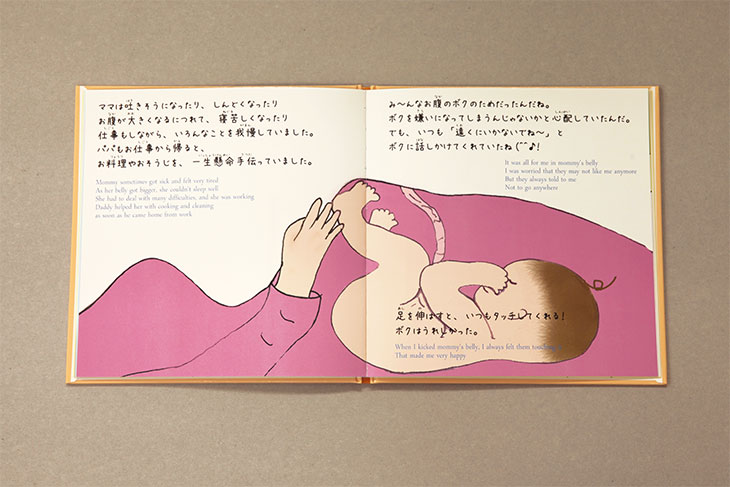 ママは吐きそうになったり、しんどくなったり
お腹が大きくなるにつれて、寝苦しくなったり
仕事もしながら、いろんなことを我慢していました。
パパもお仕事から帰ると、
お料理やおそうじを、一生懸命手伝っていました。
Mommy sometimes got sick and felt very tired
As her belly got bigger, she couldn't sleep well
She had to deal with many difficulties, and she was working
Daddy helped her with cooking and cleaning
as soon as he came home from work
み〜んなお腹のボクのためだったんだね。
ボクを嫌いになってしまうんじゃないかと心配していたんだ。
でも、いつも「遠くにいかないでね〜」と
ボクに話しかけてくれていたね(^^♪!
It was all for me in mommy's belly
I was worried that they may not like me anymore
But they always told to me
Not to go anywhere
足を伸ばすと、いつもタッチしてくれる!
ボクはうれしかった。
When I kicked mommy's belly, I always felt them
That made me very happy